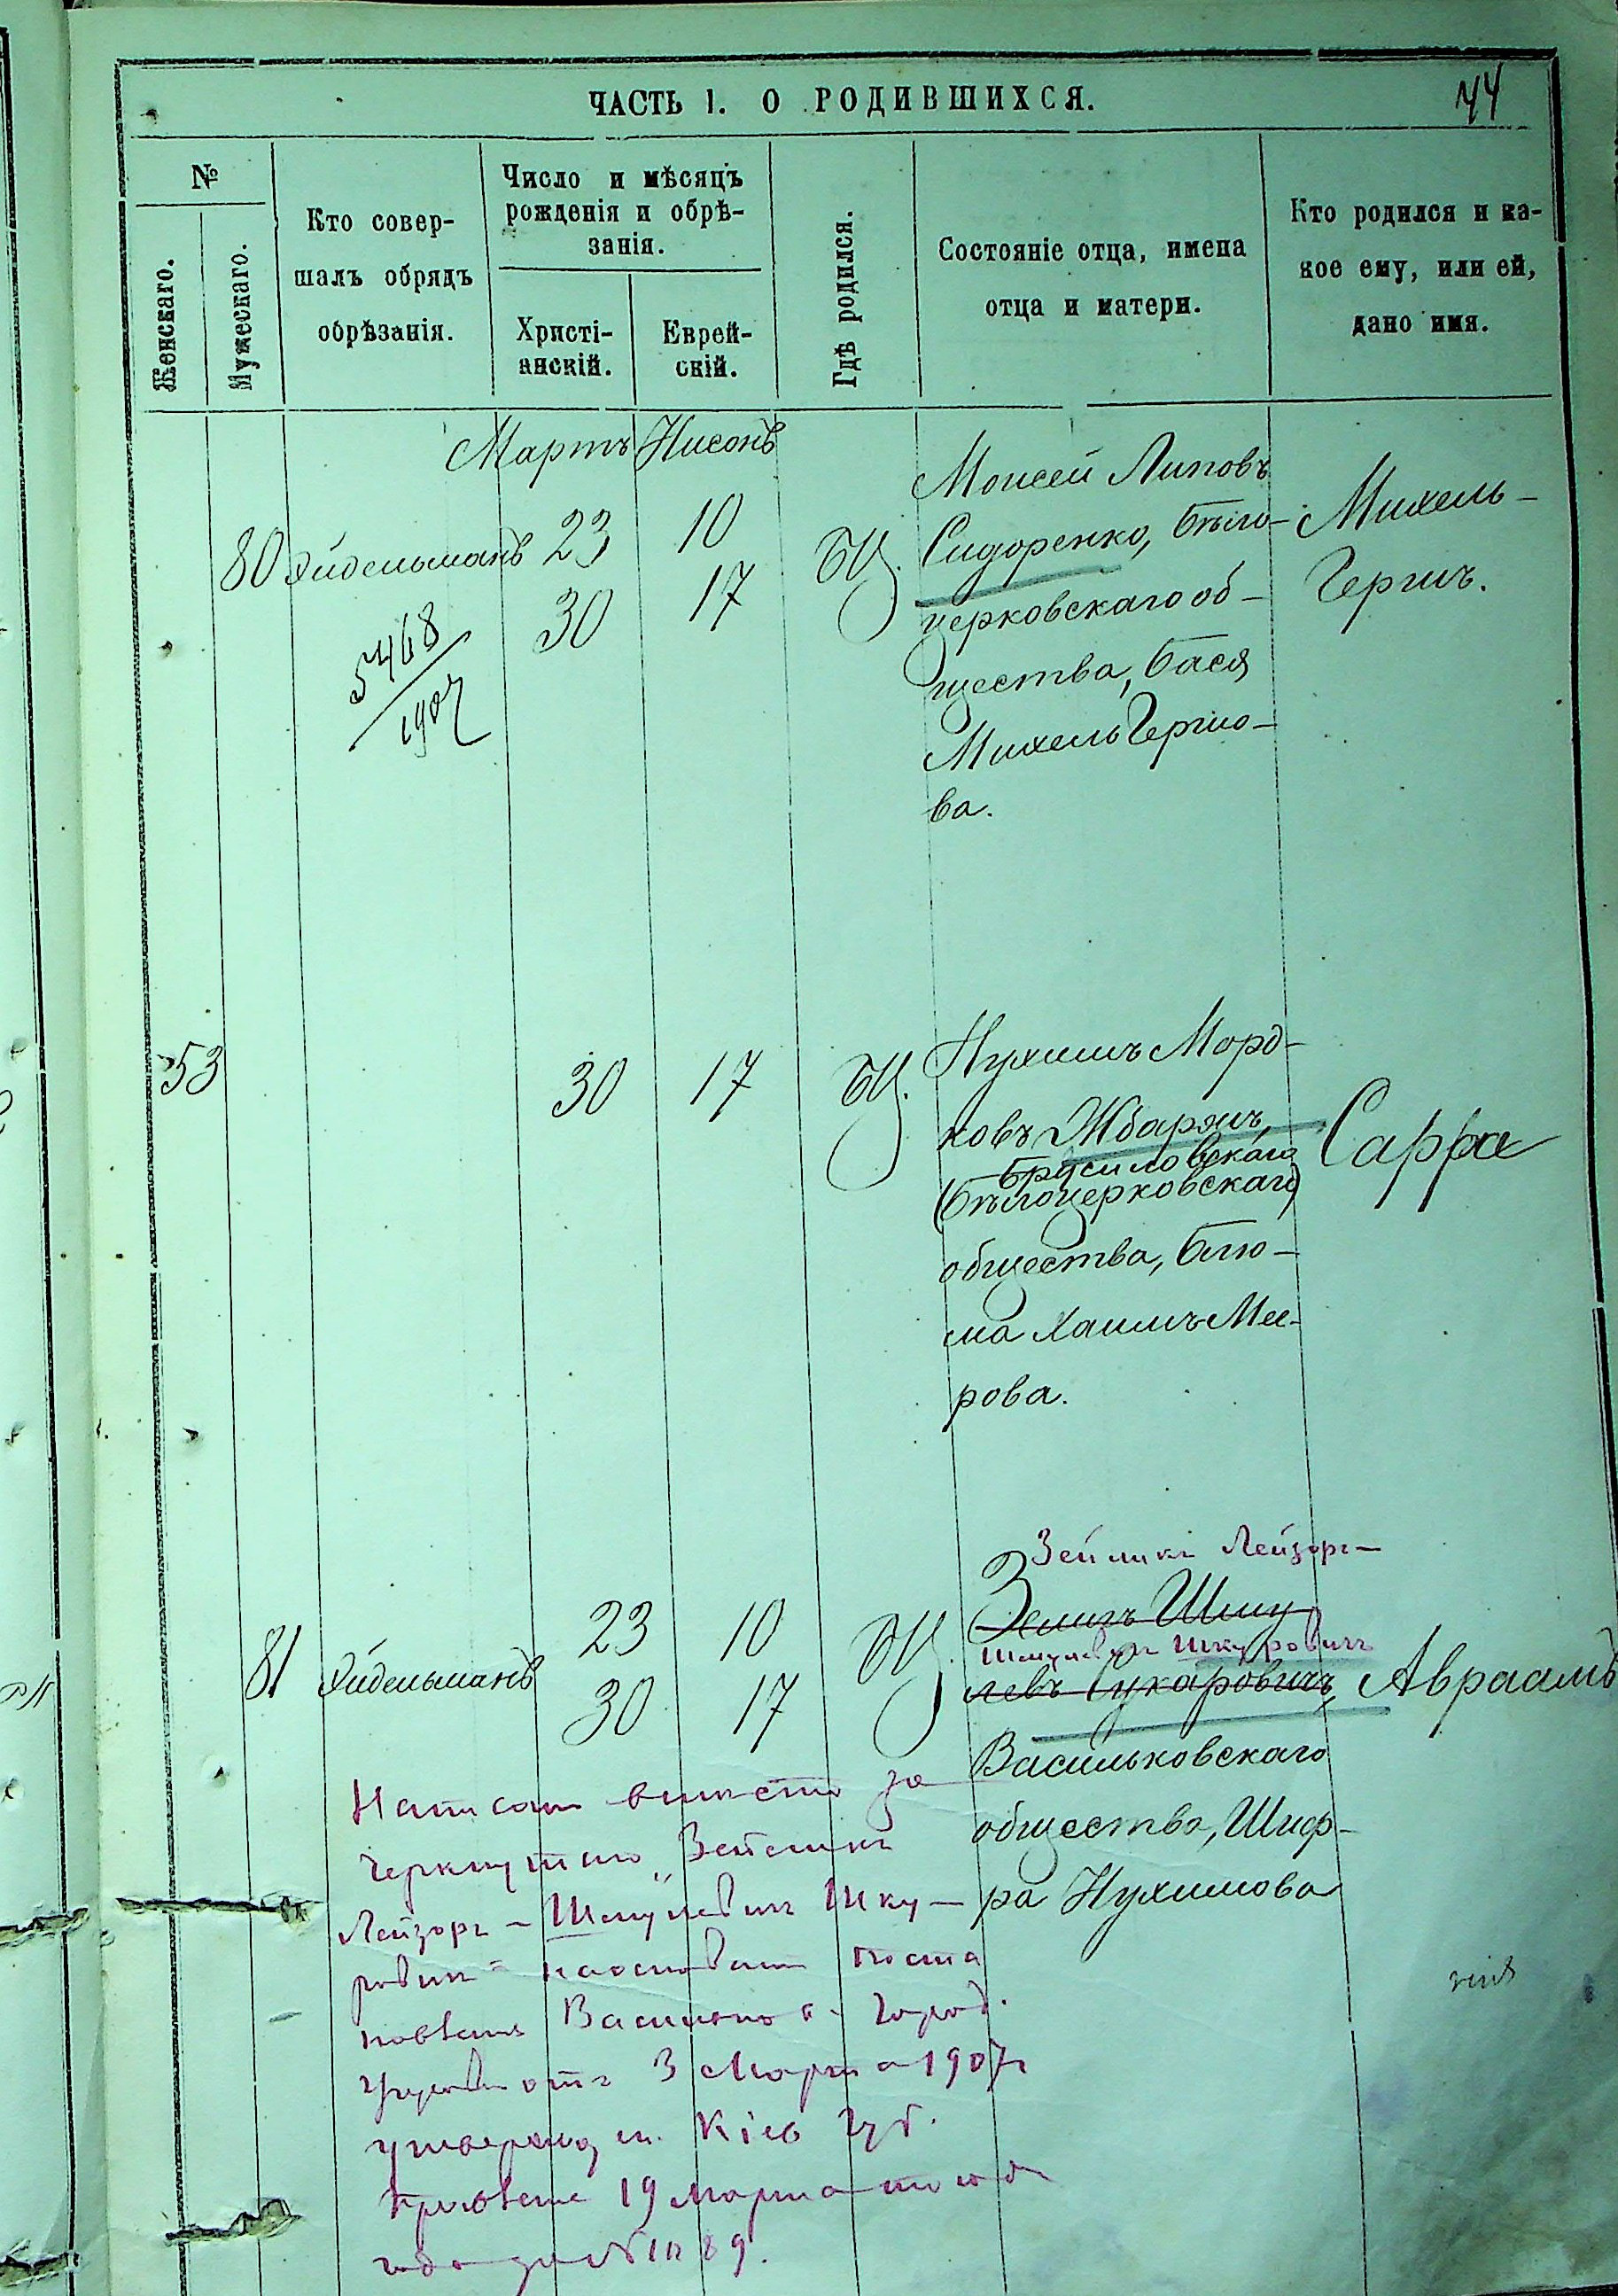 ЧАСТЬ I. О РОДИВШИХСЯ.
44
№
Женскаго.
Мужескаго.
Кто совер-
шалъ обрядъ
обрѣзанія.
Число и мѣсяцъ
рожденія и обрѣ-
занія.
Христі-
анскій.
Еврей-
скій.
Гдѣ родился.
Состояніе отца, имена
отца и матери.
Кто родился и ка-
кое ему, или ей,
дано имя.
Мартъ Нисонъ
80 Эйдельманъ 23 10 БЦ.
30 17
5468
1907
Моисей Липовъ
Сидоренко, Бѣло-
церковскаго об-
щества, Бася
Михель Гершо-
ва.
Михель-
Гершъ.
53
30 17 БЦ.
Нухимъ Морд-
ковъ Жбаръ,
Брусиловскаго
(Бѣлоцерковскаго)
общества, Блю-
ма Хаимъ-Мее-
рова.
Сарра
81 Эйдельманъ 23 10 БЦ.
30 17
Зейликъ Лейзоръ-
Зелигъ Шму
Шмулевичъ Шкуровичъ
левъ Цукаровичъ,
Васильковскаго
общества, Шиф-
ра Нухимова
Авраамъ
Написанъ вмѣсто за
черкнутаго „Зейликъ
Лейзоръ-Шмулевичъ Шку-
ровичъ" на основаніи поста
новленія Васильков. Город.
Управы отъ 3 Марта 1907 г
утвержд. Кіев Губ.
Правленіе 19 марта того же
года за №